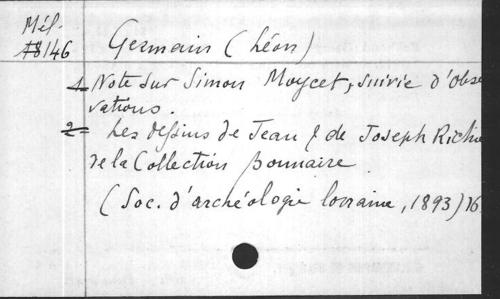 Mél.
A8146
Germain (Léon)
1 Note sur Simon Moycet, suivie d'obse
vations.
2= Les dessins de Jean & de Joseph Richie
de la Collection Bonnaire
(Soc. d'archéologie lorraine, 1893) 16